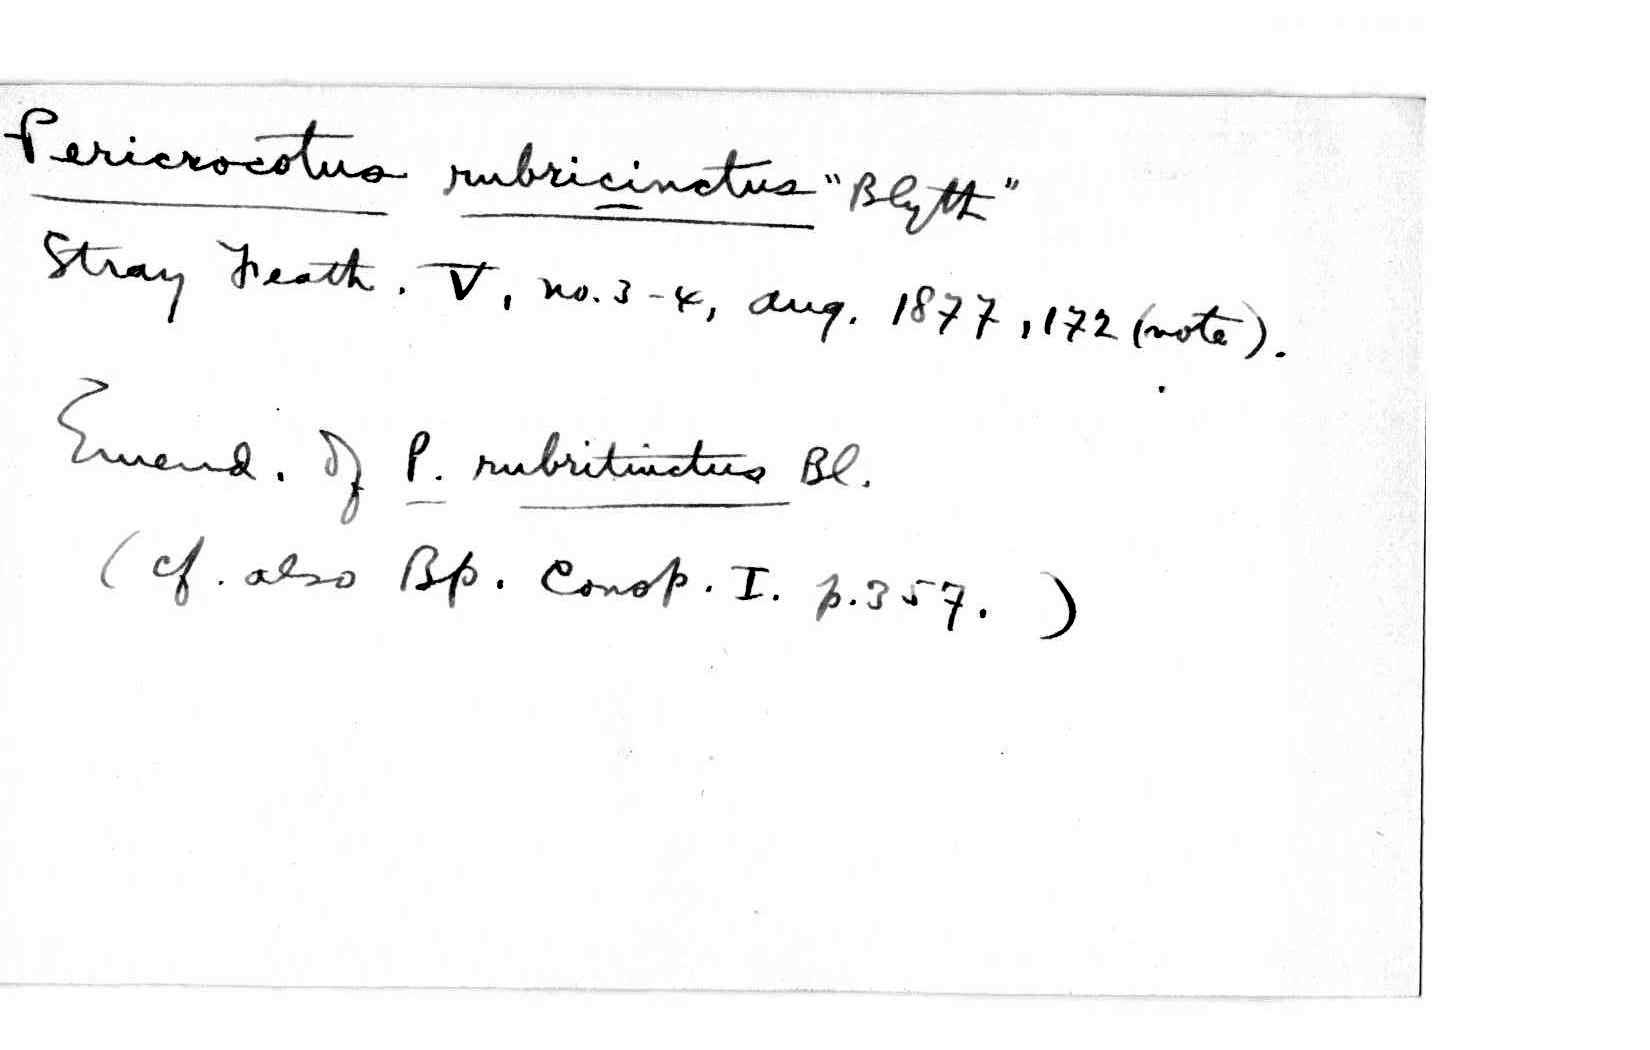 Pericrocotus rubricinctus "Blyth"
Stray Feath. V, no. 3-4, Aug. 1877, 172 (note).
Emend. of P. rubritinctus Bl.
(cf. also Bp. Consp. I. p. 357.)